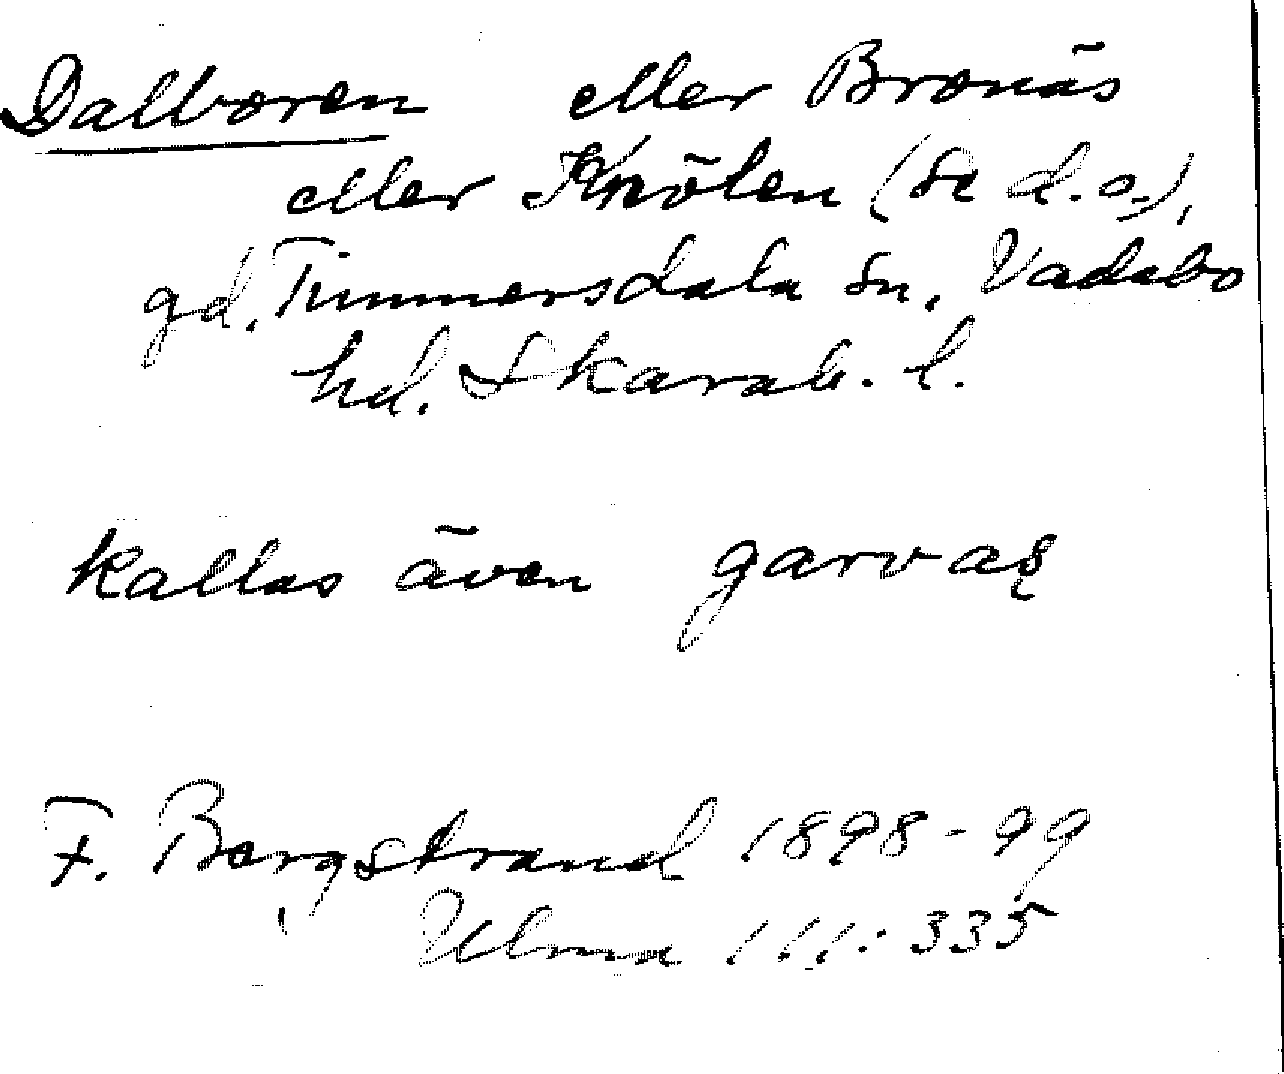 Dalboren eller Bronäs
eller Knölen (Se d.o.),
gd, Timmersdala sn, Vadsbo
hd. Skarab. l.
kallas även garvas
F. Bergstrand 1898-99
Ulma 111:335